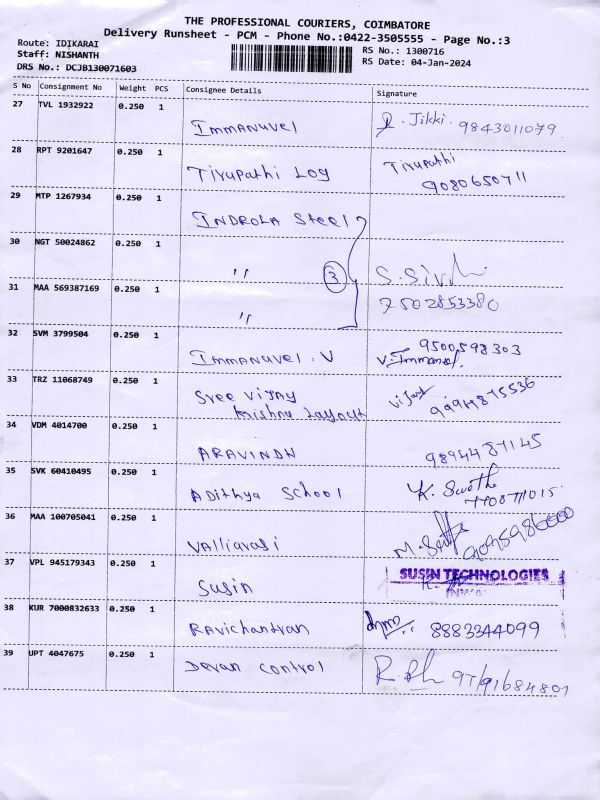 THE PROFESSIONAL COURIERS, COIMBATORE
Delivery Runsheet - PCM - Phone No.:0422-3505555 - Page No.:3
Route: IDIKARAI
Staff: NISHANTH
DRS No.: DCJB130071603
RS No.: 1300716
RS Date: 04-Jan-2024
S No Consignment No Weight PCS Consignee Details Signature
27 TVL 1932922 0.250 1
Immanuvel Jikki. 9843011079.
28 RPT 9201647 0.250 1
Tirupathi Log Tirupathi
9080650711
29 MTP 1267934 0.250 1
INDROLA Steel
30 NGT 50024862 0.250 1
" 3
31 MAA 569387169 0.250 1
" 7502853380
32 SVM 3799504 0.250 1
9500598303
Immanuvel . V V. Immanuel.
33 TRZ 11068749 0.250 1
Sree Vijay Vijay
Krishna Layout
34 VDM 4014700 0.250 1
ARAVINDH
35 SVK 60410495 0.250 1
Adithya School K. Swetha
36 MAA 100705041 0.250 1
Valliarasi
37 VPL 945179343 0.250 1
Susin SUSIN TECHNOLOGIES
38 KUR 7000832633 0.250 1
Ravichantran 8883344099
39 UPT 4047675 0.250 1
Devan Control